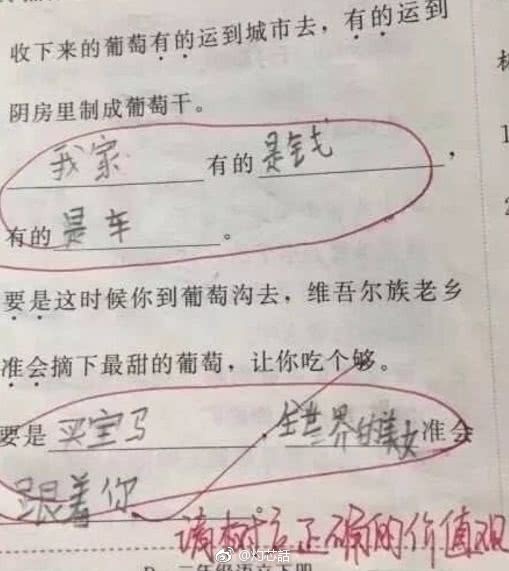 收下来的葡萄有的运到城市去，有的运到
阴房里制成葡萄干。
我家 有的 是钱，
有的 是车。
要是这时候你到葡萄沟去，维吾尔族老乡
准会摘下最甜的葡萄，让你吃个够。
要是 买宝马，全世界的美女 准会
跟着你
请树立正确的价值观